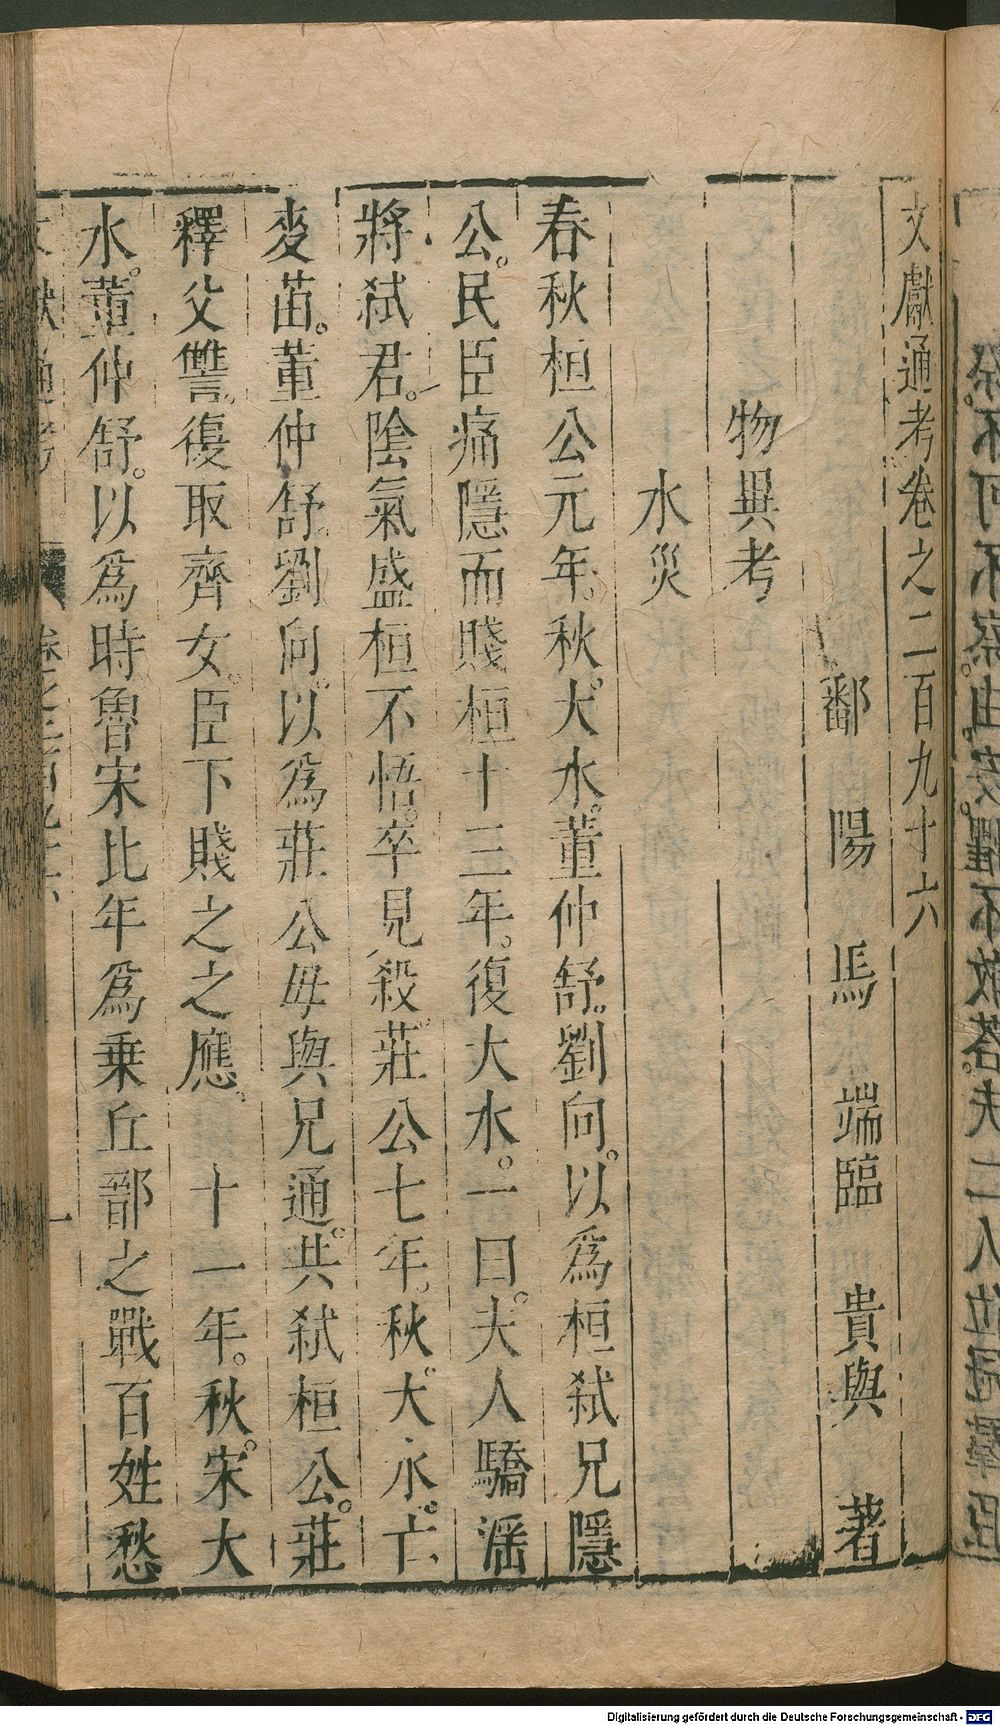 文獻通考卷之二百九十六
鄱陽馬端臨貴與著
物異考
水災
春秋桓公元年。秋。大水。董仲舒。劉向。以爲桓弑兄隱
公。民臣痛隱而賤桓十三年。復大水。一曰。夫人驕淫
將弑君。陰氣盛桓不悟。卒見殺。莊公七年。秋。大水。亡
麥苗。董仲舒。劉向。以爲莊公母與兄通。共弑桓公。莊
釋父讐。復取齊女。臣下賤之之應。 十一年。秋。宋大
水。董仲舒。以爲時魯宋比年爲乗丘鄑之戰百姓愁
Digitalisierung gefördert durch die Deutsche Forschungsgemeinschaft - DFG